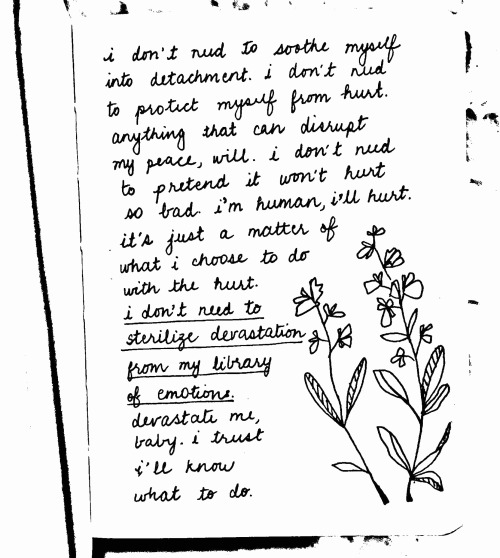 i don't need to soothe myself
into detachment. i don't need
to protect myself from hurt.
anything that can disrupt
my peace, will. i don't need
to pretend it won't hurt
so bad. i'm human, i'll hurt.
it's just a matter of
what i choose to do
with the hurt.
i don't need to
sterilize devastation
from my library
of emotions.
devastate me,
baby. i trust
i'll know
what to do.